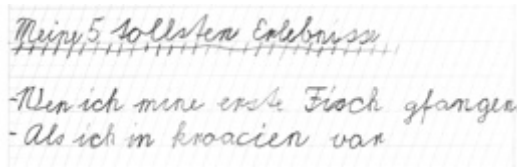 Meine 5 tollsten Erlebnisse
-Wen ich mine erste Fisch gfangen
-Als ich in kroacien var